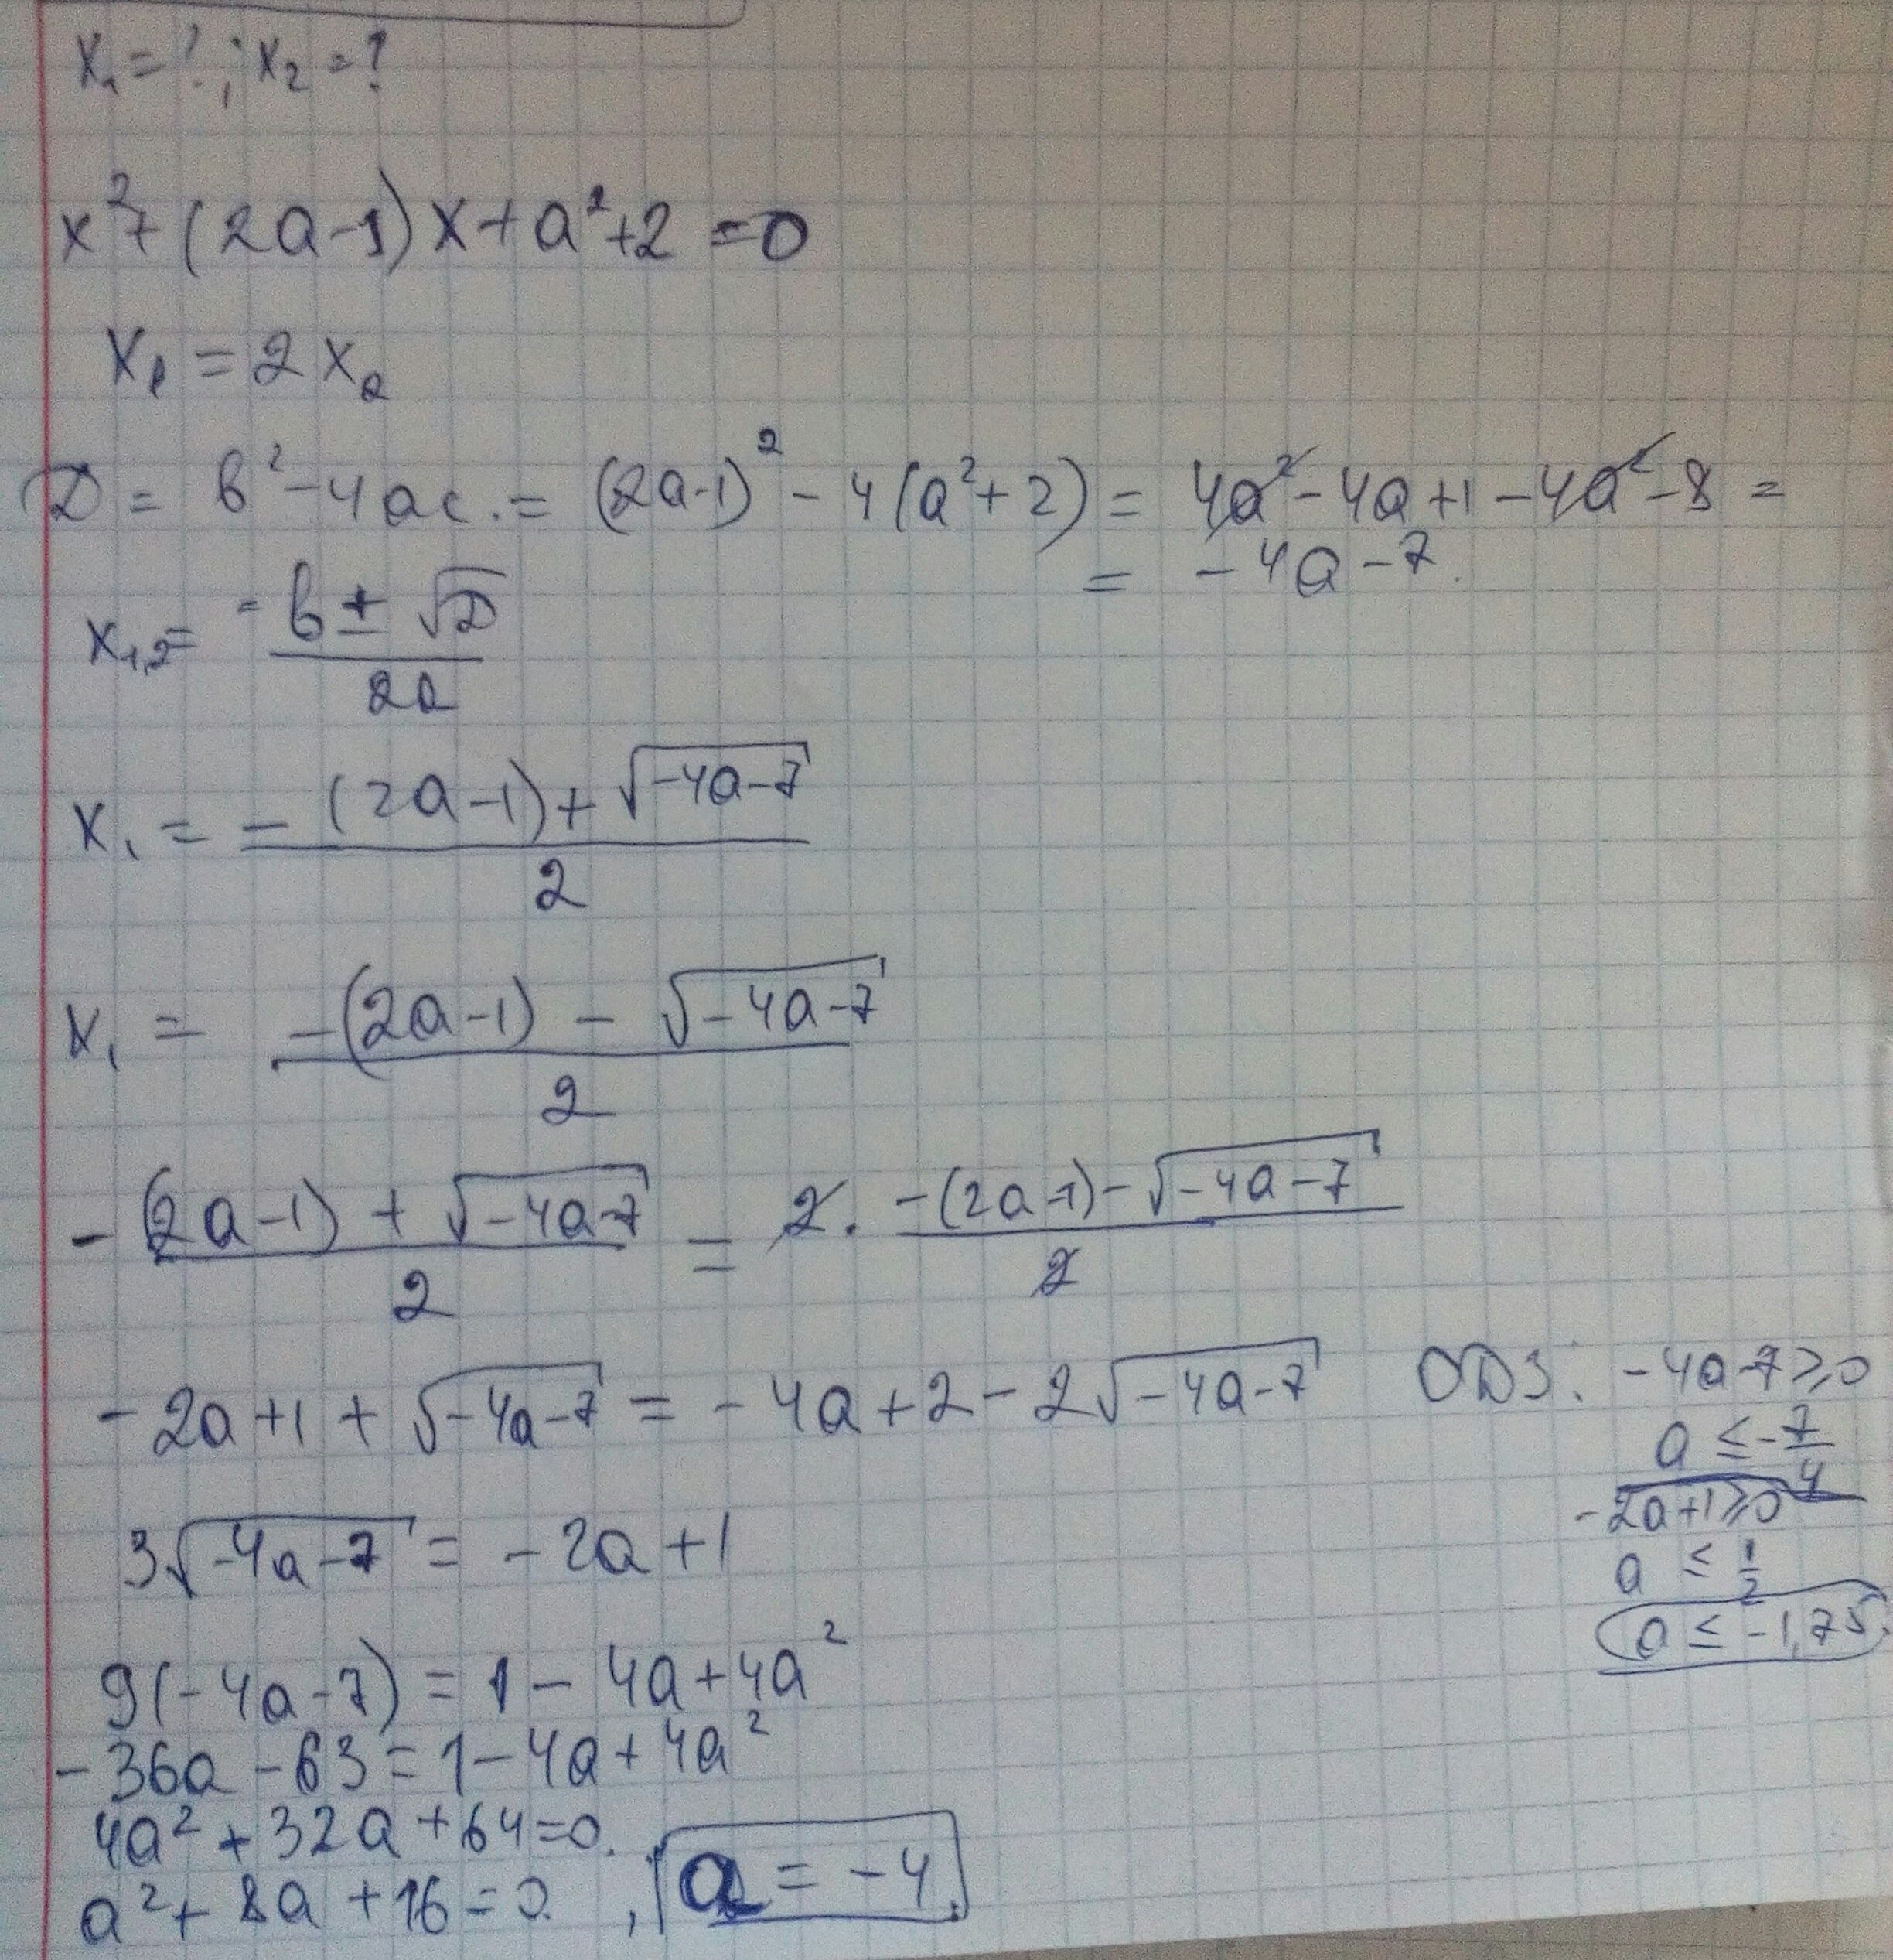 x₁ = ? ; x₂ = ?
x² + (2a-1)x + a² + 2 = 0
x₁ = 2x₂
D = b² - 4ac. = (2a-1)² - 4(a² + 2) = 4a² - 4a + 1 - 4a² - 8 =
= -4a - 7.
x₁,₂ = (-b ± √D) / 2a
x₁ = (-(2a-1) + √(-4a-7)) / 2
x₁ = (-(2a-1) - √(-4a-7)) / 2
(-(2a-1) + √(-4a-7)) / 2 = 2 · (-(2a-1) - √(-4a-7)) / 2
-2a + 1 + √(-4a-7) = -4a + 2 - 2√(-4a-7)
ODЗ: -4a-7 ≥ 0
a ≤ -7/4
-2a+1 ≥ 0
a ≤ 1/2
a ≤ -1,75.
3√(-4a-7) = -2a + 1
9(-4a-7) = 1 - 4a + 4a²
-36a - 63 = 1 - 4a + 4a²
4a² + 32a + 64 = 0.
a² + 8a + 16 = 0. , a = -4.